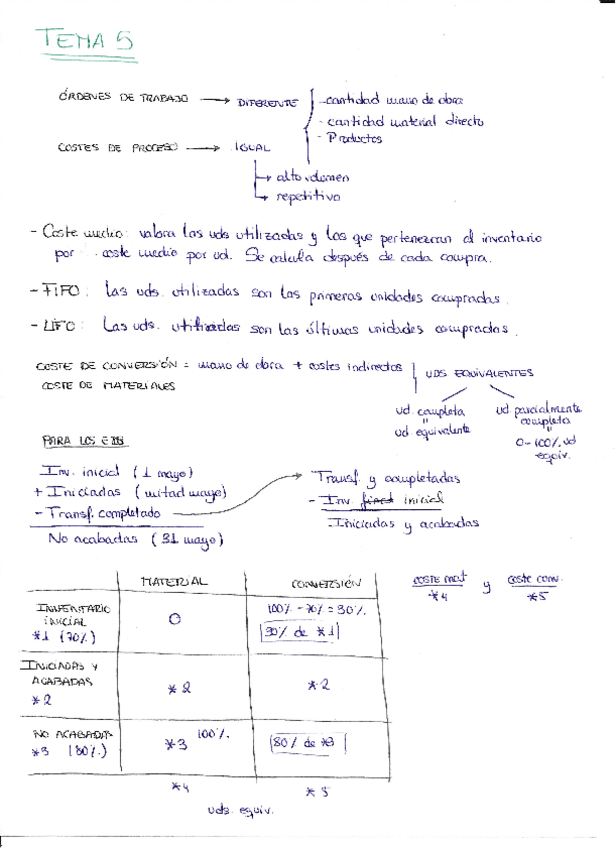 TEMA 5
ÓRDENES DE TRABAJO → DIFERENTE
- cantidad mano de obra
- cantidad material directo
- Productos
COSTES DE PROCESO → IGUAL
→ alto volumen
→ repetitivo
- Coste medio: valora las uds utilizadas y las que pertenezcan al inventario
por coste medio por ud. Se calcula después de cada compra.
- FIFO: Las uds. utilizadas son las primeras unidades compradas.
- LIFO: Las uds. utilizadas son las últimas unidades compradas.
COSTE DE CONVERSIÓN = mano de obra + costes indirectos
COSTE DE MATERIALES
UDS EQUIVALENTES
ud. completa
"
ud equivalente
ud. parcialmente
completa
"
0-100% ud
equiv.
PARA LOS
Inv. inicial (1 mayo)
+ Iniciadas (mitad mayo)
- Transf. completado
No acabadas (31 mayo)
Transf. y completadas
- Inv. final inicial
Iniciadas y acabadas
MATERIAL CONVERSIÓN
INVENTARIO
INICIAL
*1 (70%)
0
100% - 70% = 30%
30% de *1
INICIADAS Y
ACABADAS
*2
*2
*2
NO ACABADAS
*3 (80%)
*3 100%
80% de *3
*4 *5
uds. equiv.
coste mat
*4
y
coste conv.
*5